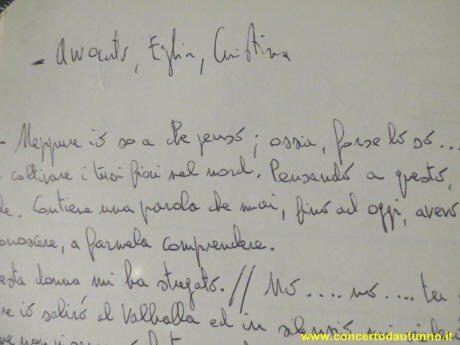 - Avvocato, Eglin, Cristina
- Neppure io so a che penso; ossia, forse lo so...
coltivare i tuoi fiori nel nord. Pensando a questo,
de. Contiene una parola che mai, fino ad oggi, avevo
onoscere, a farmela comprendere.
esta donna mi ha stregato. // No.... no.... tu
re io salirò al Valhalla ed in silenzio
www.concertodautunno.it